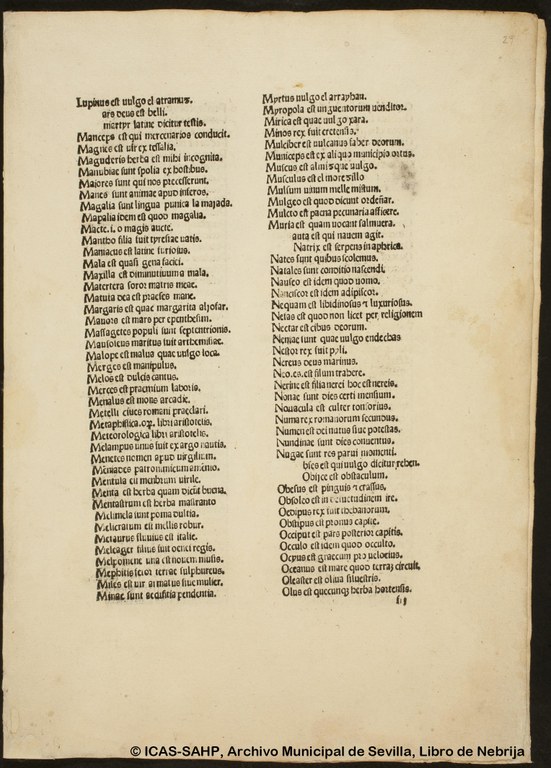 29
Lupinus est uulgo el atramuz.
ars deus est belli.
martyr latine dicitur testis.
Manceps est qui mercenarios conducit.
Magnes est uir ex tessalia.
Maguderis herba est mihi incognita.
Manubiae sunt spolia ex hostibus.
Maiores sunt qui nos precesserunt.
Manes sunt animae apud inferos.
Magalia sunt lingua punica la majada.
Mapalia idem est quod magalia.
Macte .i. o magis aucte.
Mantho filia fuit tyresiae uatis.
Maniacus est latine furiosus.
Mala est quasi gena faciei.
Maxilla est diminutiuum a mala.
Matertera soror matris meae.
Matuta dea est praeses mane.
Margaris est quae margarita aljofar.
Mauors est mars per epenthesim.
Massagetes populi sunt septentrionis.
Mausoleus maritus fuit arthemisiae.
Malope est malua quae uulgo loca.
Merges est manipulus.
Melos est dulcis cantus.
Merces est praemium laboris.
Menalus est mons arcadie.
Metelli ciues romani praeclari.
Metaphisica.orum. libri aristotelis.
Meteorologica libri aristotelis.
Melampus unus fuit ex argonautis.
Menetes nomen apud uirgilium.
Meniades patronimicum a menio.
Mentula est membrum uirile.
Menta est herba quam dicit buena.
Mentastrum est herba mastranto
Melimela sunt poma dulcia.
Melicratum est mellis robur.
Metaurus fluuius est italie.
Meleager filius fuit oenei regis.
Melpomene una est nouem musis.
Mephitis fetor terrae sulphureus.
Miles est uir armatus siue mulier.
Minae sunt aedificia pendentia.
Myrtus uulgo el arrayhan.
Myropola est unguentorum uenditor.
Mirica est quae uulgo xara.
Minos rex fuit cretensis.
Mulciber est uulcanus faber deorum.
Municeps est ex aliquo municipio ortus.
Muscus est almisque uulgo.
Musculus est el morezillo
Mulsum uinum melle mistum.
Mulgeo est quod dicunt ordeñar.
Mulcto est paena pecuniaria afficere.
Muria est quam uocant salmuera.
auta est qui nauem agit.
Natrix est serpens in aphrica.
Nates sunt quibus scolemus.
Natales sunt conditio nascendi.
Nauseo est idem quod uomo.
Nanciscor est idem adipiscor.
Nequam est libidinosus & luxuriosus.
Nefas est quod non licet per religionem
Nectar est cibus deorum.
Neniae sunt quae uulgo endechas
Nestor rex fuit pyli.
Nereus deus marinus.
Neo.es. est filum trahere.
Nerine est filia nerei hoc est nereis.
Nonae sunt dies certi mensium.
Nouacula est culter tonsorius.
Numa rex romanorum secundus.
Numen est dei natus siue potestas.
Nundinae sunt dies conuentus.
Nugae sunt res parui momenti.
bses est qui uulgo dicitur rehen.
Obiice est obstaculum.
Obesus est pinguis & crassus.
Obsoleo est in desuetudinem ire.
Oedipus rex fuit thebanorum.
Obstipus est pronus capite.
Occiput est pars posterior capitis.
Occulo est idem quod occulto.
Ocyus est graecum pro uelocius.
Oceanus est mare quod terras circuit.
Oleaster est oliua siluestris.
Olus est quecunque herba hortensis.
© ICAS-SAHP, Archivo Municipal de Sevilla, Libro de Nebrija